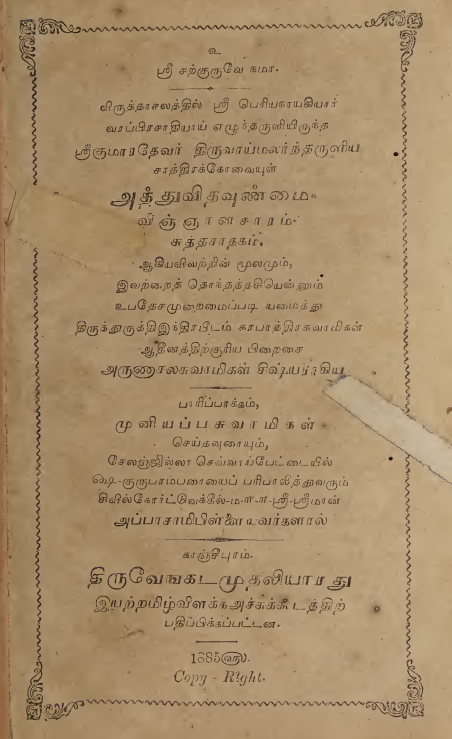 உ
ஸ்ரீ சற்குருவே நமா.
விருத்தாசலத்தில் ஸ்ரீ பெரியநாயகியார்
வரப்பிரசாதியாய் எழுந்தருளியிருந்த
ஸ்ரீகுமாரதேவர் திருவாய்மலர்ந்தருளிய
சாத்திரக்கோவையுள்
அத்துவிதவுண்மை.
விஞ்ஞானசாரம்.
சுத்தசாதகம்.
ஆகியவிவற்றின் மூலமும்,
இவற்றைத் தொகுத்தருளியென்னும்
உபதேசமுறைமைப்படி யமைத்து
திருத்துருத்திஇந்திரபீடம் கரபாத்திரசுவாமிகள்
ஆதீனத்திற்குரிய பிறைசை
அருணாசலசுவாமிகள் சிஷ்யராகிய
பாரிப்பாக்கம்,
முனியப்பசுவாமிகள்
செய்தவுரையும்,
சேலஞ்ஜில்லா செவ்வாய்பேட்டையில்
௸-குருபரம்பரையைப் பரிபாலித்துவரும்
சிவில்கோர்ட்வக்கீல்-ம-ள-ள-ஸ்ரீ-ஸ்ரீமான்
அப்பாசாமிபிள்ளையவர்களால்
காஞ்சீபுரம்.
திருவேங்கடமுதலியாரது
இயற்றமிழ்விளக்கஅச்சுக்கூடத்திற்
பதிப்பிக்கப்பட்டன.
1885௵.
Copy - Right.